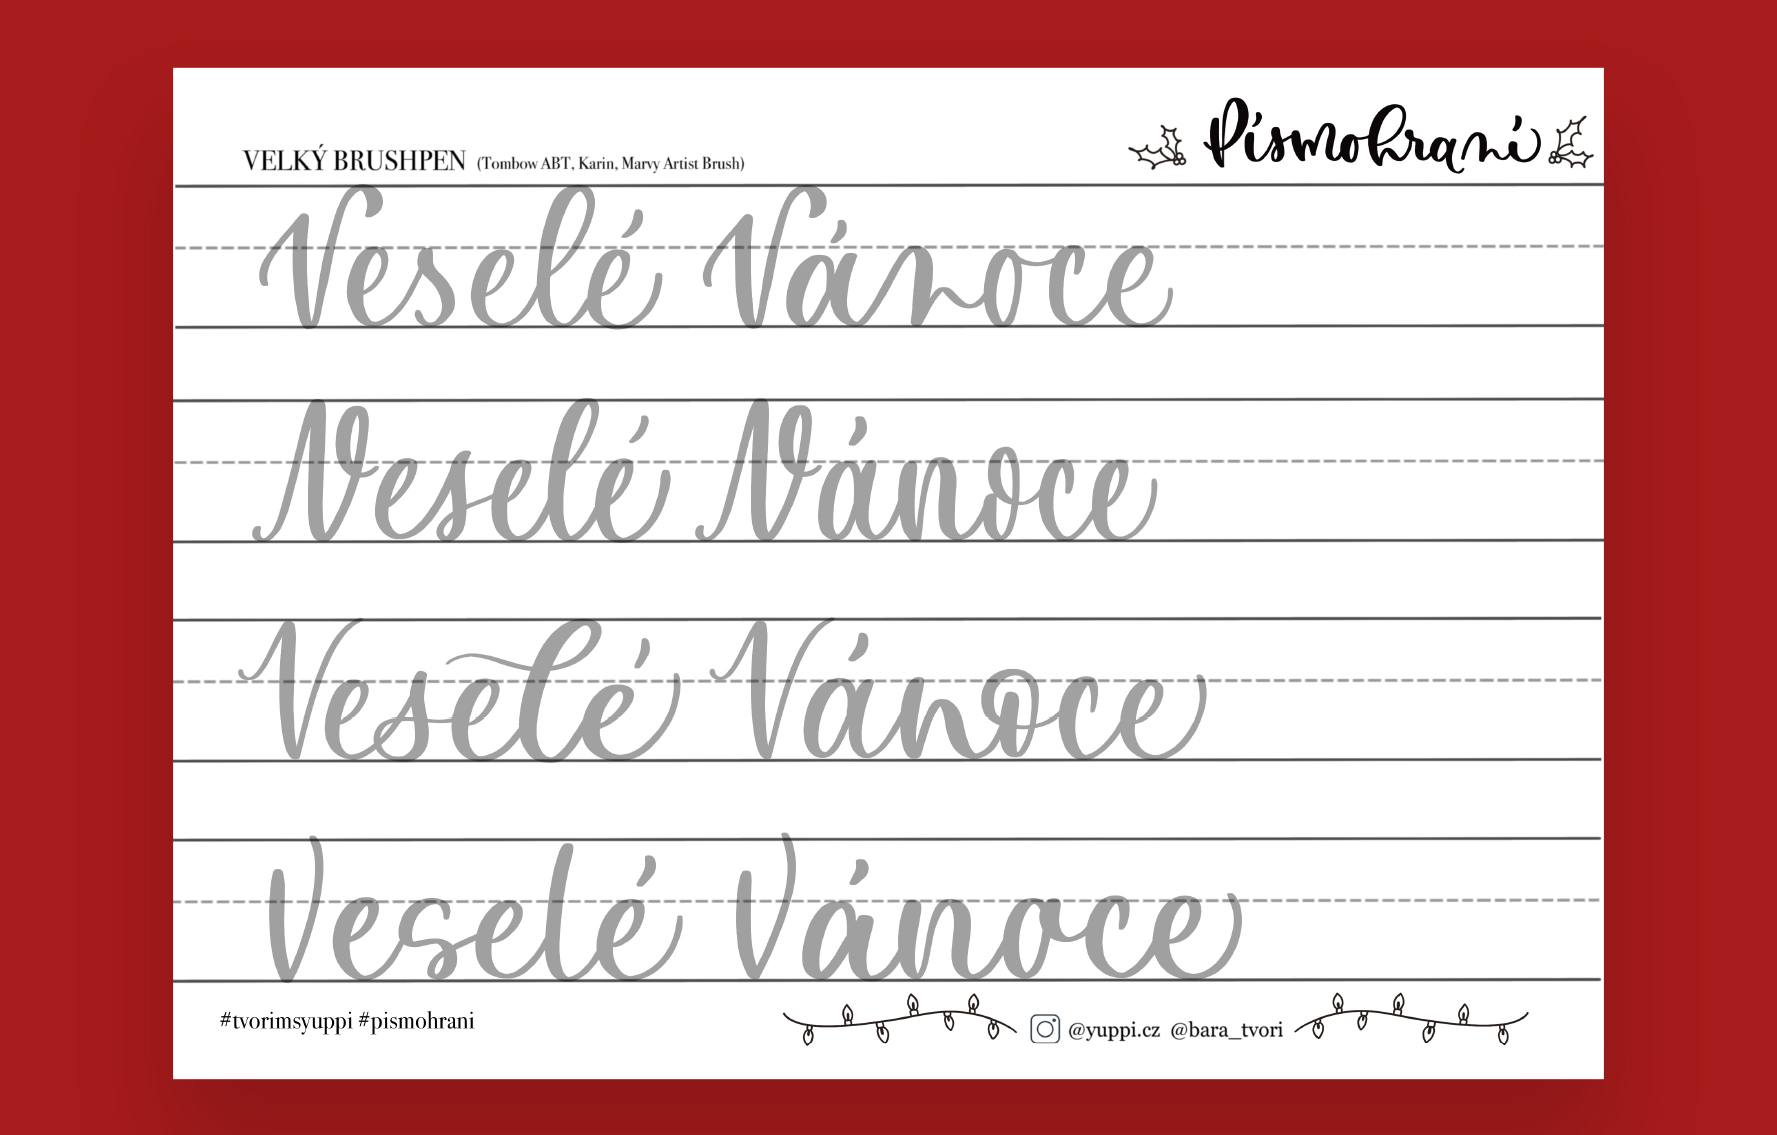 VELKÝ BRUSHPEN (Tombow ABT, Karin, Marvy Artist Brush)
Písmohraní
Veselé Vánoce
Veselé Vánoce
Veselé Vánoce
Veselé Vánoce
#tvorimsyuppi #pismohrani
@yuppi.cz @bara_tvori